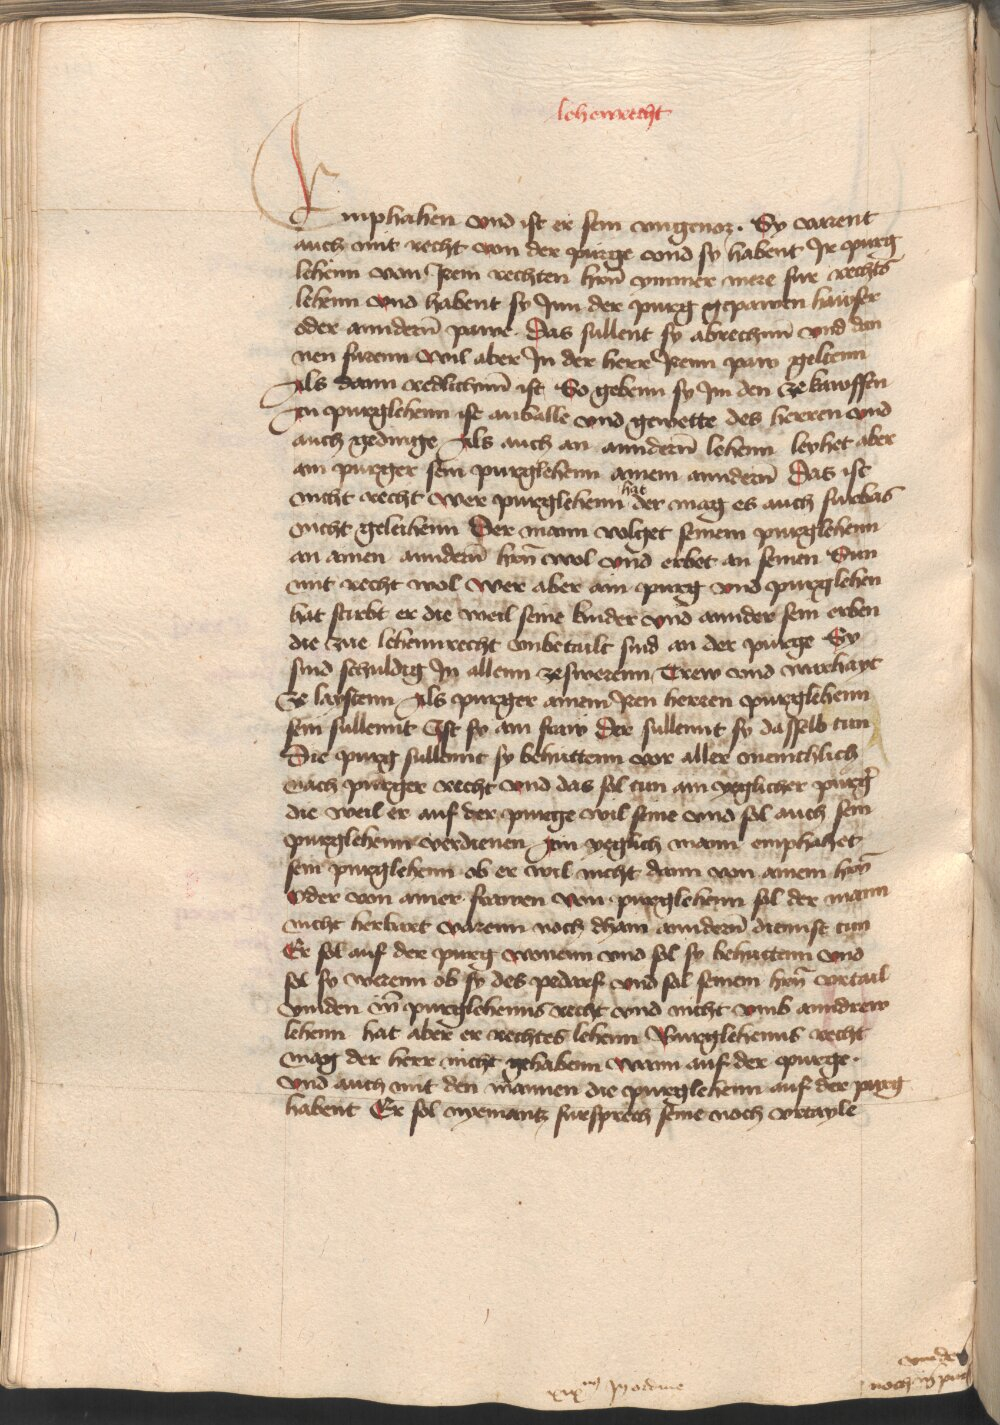 lehenrecht
Emphahen vnd ist er sein vngenoz. Sy varent
auch mit recht von der purge vnd sy habent Ir purg
lehenn von Irem rechten hrñ ymmer mere fur rechts
lehenn vnd habent sy Inn der purg gepawen hawser
oder anndern̄ pawe. Das sullent sy abrechnn̄ vnd dan
nen furenn wil aber In der herr Irenn paw geltenn
Als dann redlichnn̄ ist So gebenn sy Im den ze kawffen
An purglehenn ist anualle vnd gewette des herren vnd
auch gedinge Als auch an anndern̄ lehenn leyhet aber
ain purger sein purglehenn ainem anndern̄ Das ist
nicht recht wer purglehenn hat der mag es auch furbas
nicht geleihenn Der mann volget seinem purglehenn
an ainen anndern̄ hrñ wol vnd erbet an seinen Sun
mit recht wol wer aber ain purg vnd purglehen
hat stirbt er die weil seine kinder vnd annder sein erben
die zue lehennrecht vnbetailt sind an der purge Sy
sind schuldig In allenn ze swerenn Trew vnd warhayt
Ze laystenn Als purger ainem Iren herren purglehenn
sein sullennt Ist sy ain fraw Der sullennt sy dasselb tun
Die purg sullennt sy behuttenn vor aller menichlich
nach purger recht vnd das sol tun ain yeglicher purg̃
die weil er auf der purge wil seine vnd sol auch sein
purglehenn verdienen Ain yeglich mann emphahet
sein purglehenn ob er wil nicht dann von ainem hrñ
Oder von ainer frawen Von purglehenn sol der mann
nicht herfart varenn noch dhain anndern̄ diennst tun
Er sol auf der purg wonenn vnd sol sy behuttenn vnd
sol sy werenn ob sy des pedarf vnd sol seinem hrñ vrtail
vinden vm̄ purglehenns recht vnd nicht vmb anndrew
lehenn hat aber er rechtes lehenn Purglehenns recht
mag der herr nicht gehabenn wann auf der purge.
Vnd auch mit den mannen die purglehenn auf der purg
habent Er sol nyemantz fursprech seine noch vrtayle
xix Jn ordine
vinden
noch In purg